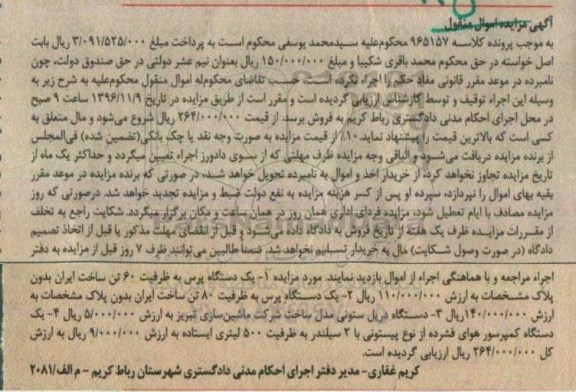 آگهی مزایده اموال منقول
به موجب پرونده کلاسه ۹۶۵۱۵۷ محکوم‌علیه سیدمحمد یوسفی محکوم است به پرداخت مبلغ ۳/۰۹۱/۵۲۵/۰۰۰ ریال بابت
اصل خواسته در حق محکوم محمد باقری شکیبا و مبلغ ۱۵۰/۰۰۰/۰۰۰ ریال بعنوان نیم عشر دولتی در حق صندوق دولت، چون
نامبرده در موعد مقرر قانونی مفاد حکم را اجراء نکرده است، حسب تقاضای محکوم‌له اموال منقول محکوم‌علیه به شرح زیر به
وسیله این اجراء توقیف و توسط کارشناس ارزیابی گردیده است و مقرر است از طریق مزایده در تاریخ ۱۳۹۶/۱۱/۹ ساعت ۹ صبح
در محل اجرای احکام مدنی دادگستری رباط کریم به فروش برسد. از قیمت ۲۶۴/۰۰۰/۰۰۰ ریال شروع می‌شود و مال متعلق به
کسی است که بالاترین قیمت را پیشنهاد نماید. ۱۰٪ از قیمت مزایده به صورت وجه نقد یا چک بانکی(تضمین شده) فی‌المجلس
از برنده مزایده دریافت می‌شود و الباقی وجه مزایده ظرف مهلتی که از سوی دادورز اجراء تعیین میگردد و حداکثر یک ماه از
تاریخ مزایده تجاوز نخواهد کرد، از خریدار اخذ و اموال به نامبرده تحویل خواهد شد، در صورتی که برنده مزایده در موعد مقرر
بقیه بهای اموال را نپردازد، سپرده او پس از کسر هزینه مزایده به نفع دولت ضبط و مزایده تجدید خواهد شد. درصورتی که روز
مزایده مصادف با ایام تعطیل شود، مزایده فردای اداری همان روز در همان ساعت و مکان برگزار میگردد. شکایت راجع به تخلف
از مقررات مزایده ظرف یک هفته از تاریخ فروش به دادگاه داده می‌شود و قبل از انقضای مهلت مذکور یا قبل از اتخاذ تصمیم
دادگاه (در صورت وصول شکایت) مال به خریدار تسلیم نخواهد شد. ضمناً طالبین می‌توانند ظرف ۷ روز قبل از مزایده به دفتر
اجراء مراجعه و با هماهنگی اجراء از اموال بازدید نمایند. مورد مزایده ۱- یک دستگاه پرس به ظرفیت ۶۰ تن ساخت ایران بدون
پلاک مشخصات به ارزش ۱۱۰/۰۰۰/۰۰۰ ریال ۲- یک دستگاه پرس به ظرفیت ۸۰ تن ساخت ایران بدون پلاک مشخصات به
ارزش ۱۴۰/۰۰۰/۰۰۰ریال ۳- دستگاه دریل ستونی مدل ساخت شرکت ماشین‌سازی تبریز به ارزش ۵/۰۰۰/۰۰۰ ریال ۴- یک
دستگاه کمپرسور هوای فشرده از نوع پیستونی با ۲ سیلندر به ظرفیت ۵۰۰ لیتری ایستاده به ارزش ۹/۰۰۰/۰۰۰ ریال به ارزش
کل ۲۶۴/۰۰۰/۰۰۰ ریال ارزیابی گردیده است.
کریم غفاری- مدیر دفتر اجرای احکام مدنی دادگستری شهرستان رباط کریم - م الف/۲۰۸۱